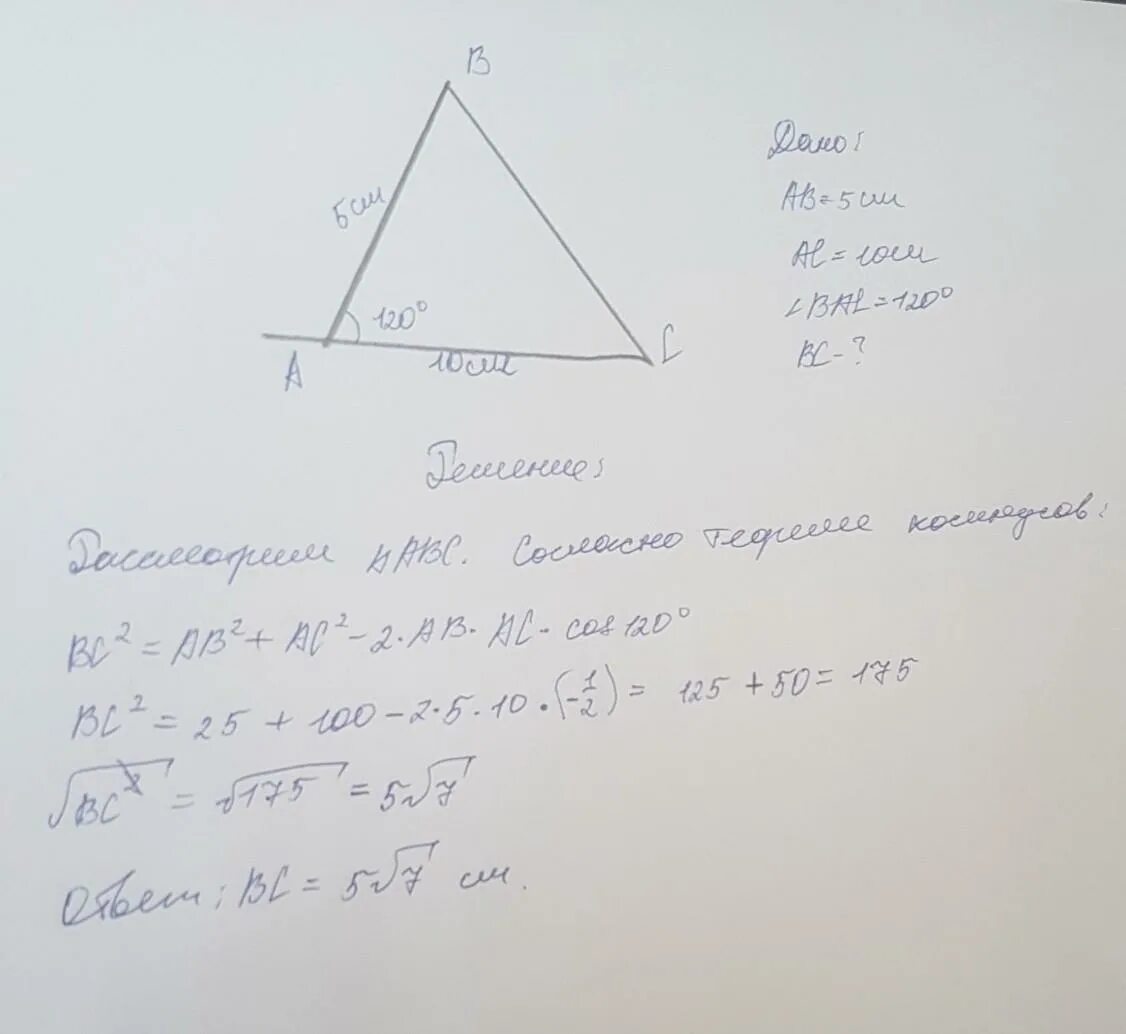 B
5см
120°
A
10см
C
Дано:
AB = 5 см
AC = 10см
∠BAC = 120°
BC - ?
Решение:
Рассмотрим ΔABC. Согласно теореме косинусов:
BC² = AB² + AC² - 2 · AB · AC · cos 120°
BC² = 25 + 100 - 2 · 5 · 10 · (-1/2) = 125 + 50 = 175
√BC² = √175 = 5√7
Ответ: BC = 5√7 см.